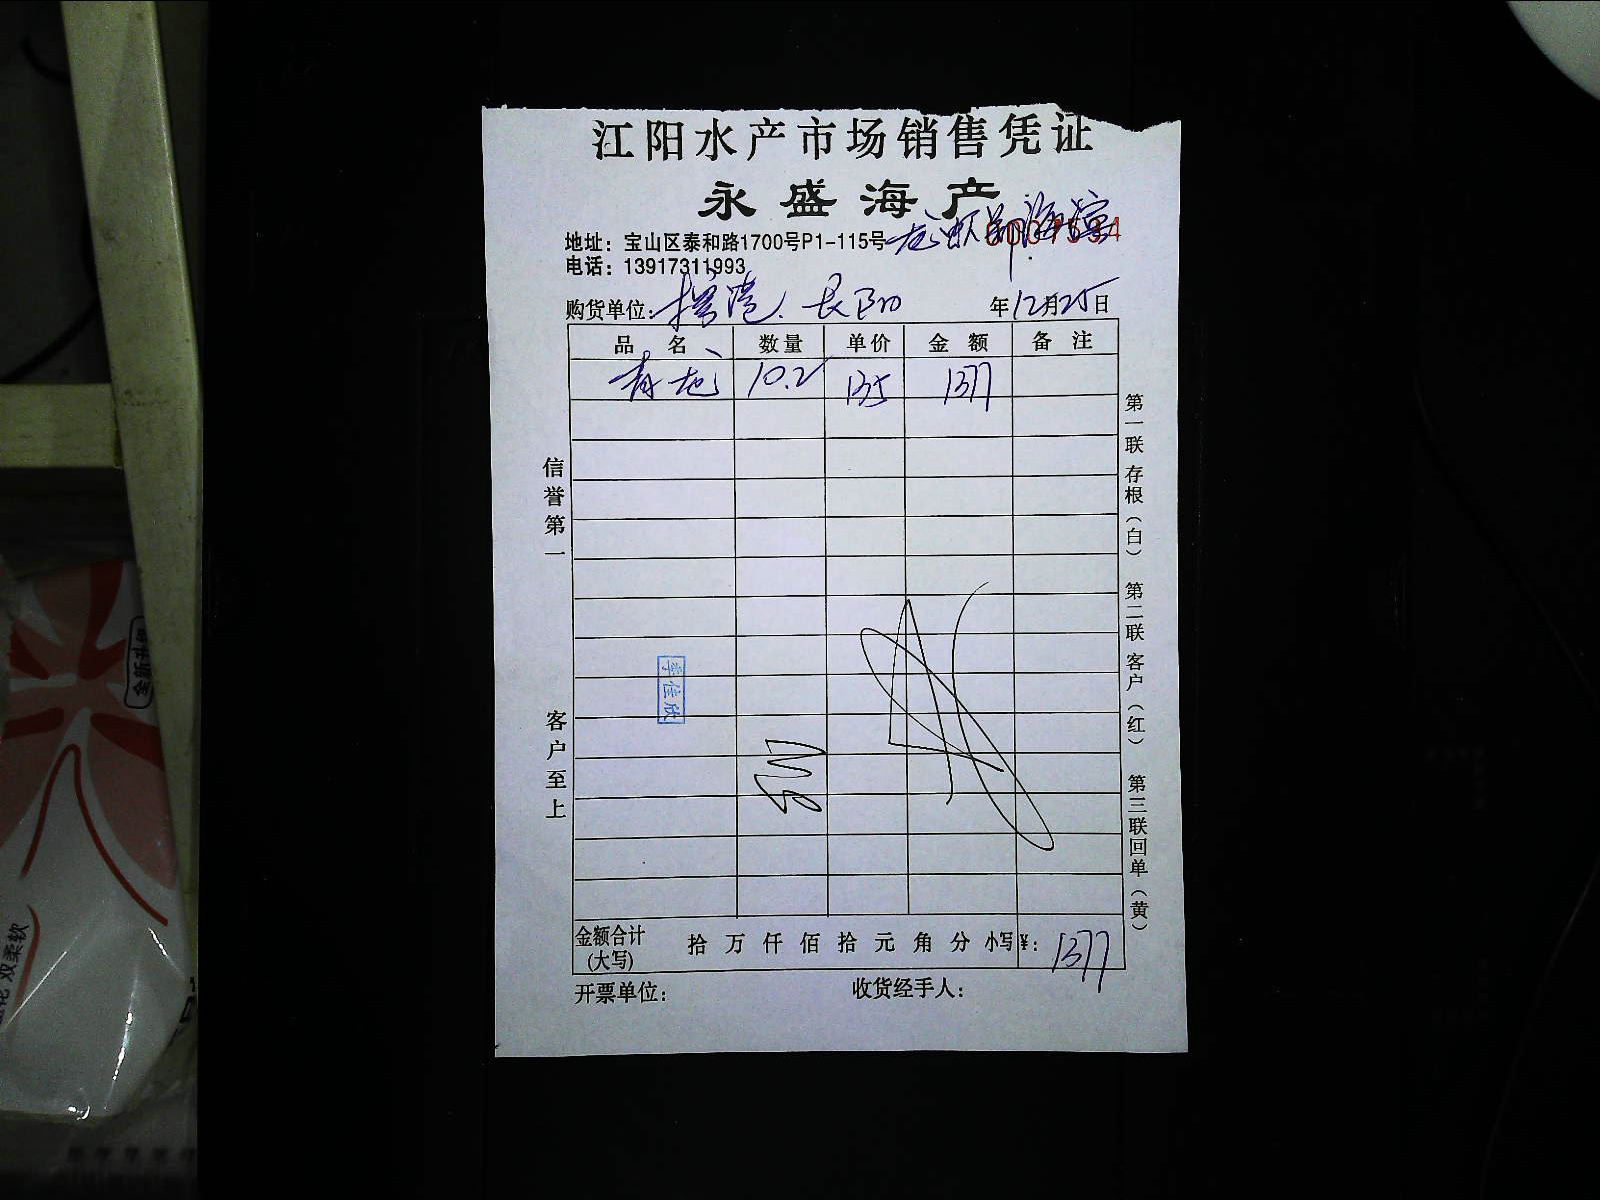 江阳水产市场销售凭证
永盛海产
地址：宝山区泰和路1700号P1-115号
龙虾
电话：13917311993
购货单位： 年12月25日
品名 数量 单价 金额 备注
青龙 10.2 135 1377
信誉第一
客户至上
李佳欣
第一联存根（白） 第二联客户（红） 第三联回单（黄）
金额合计（大写） 拾万仟佰拾元角分 小写¥：1377
开票单位： 收货经手人：
双柔软